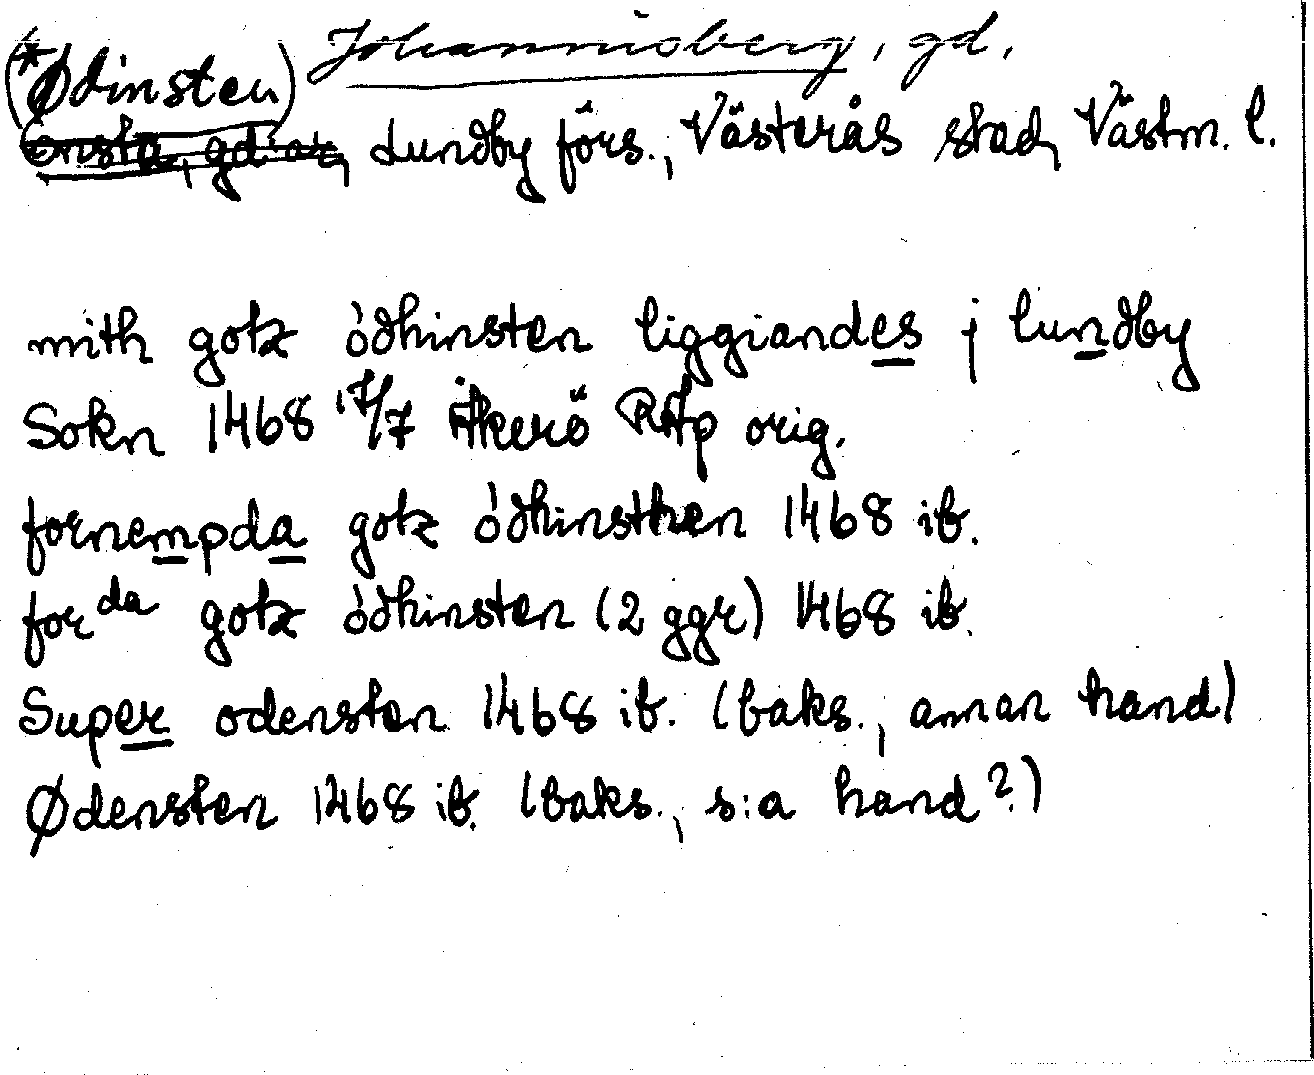 (*Ødinsten) Johannisberg, gd,
Ensta, gd:ar, Lundby förs., Västerås stad, Västm. l.
mith gotz ódhinsten liggiandes j lundby
Sokn 1468 17/7 Åkerö RAp orig.
fornempda gotz ódhinsthen 1468 ib.
for da gotz ódhinsten (2 ggr) 1468 ib.
Super odensten 1468 ib. (baks., annan hand)
Ødensten 1468 ib. (baks., s:a hand?)